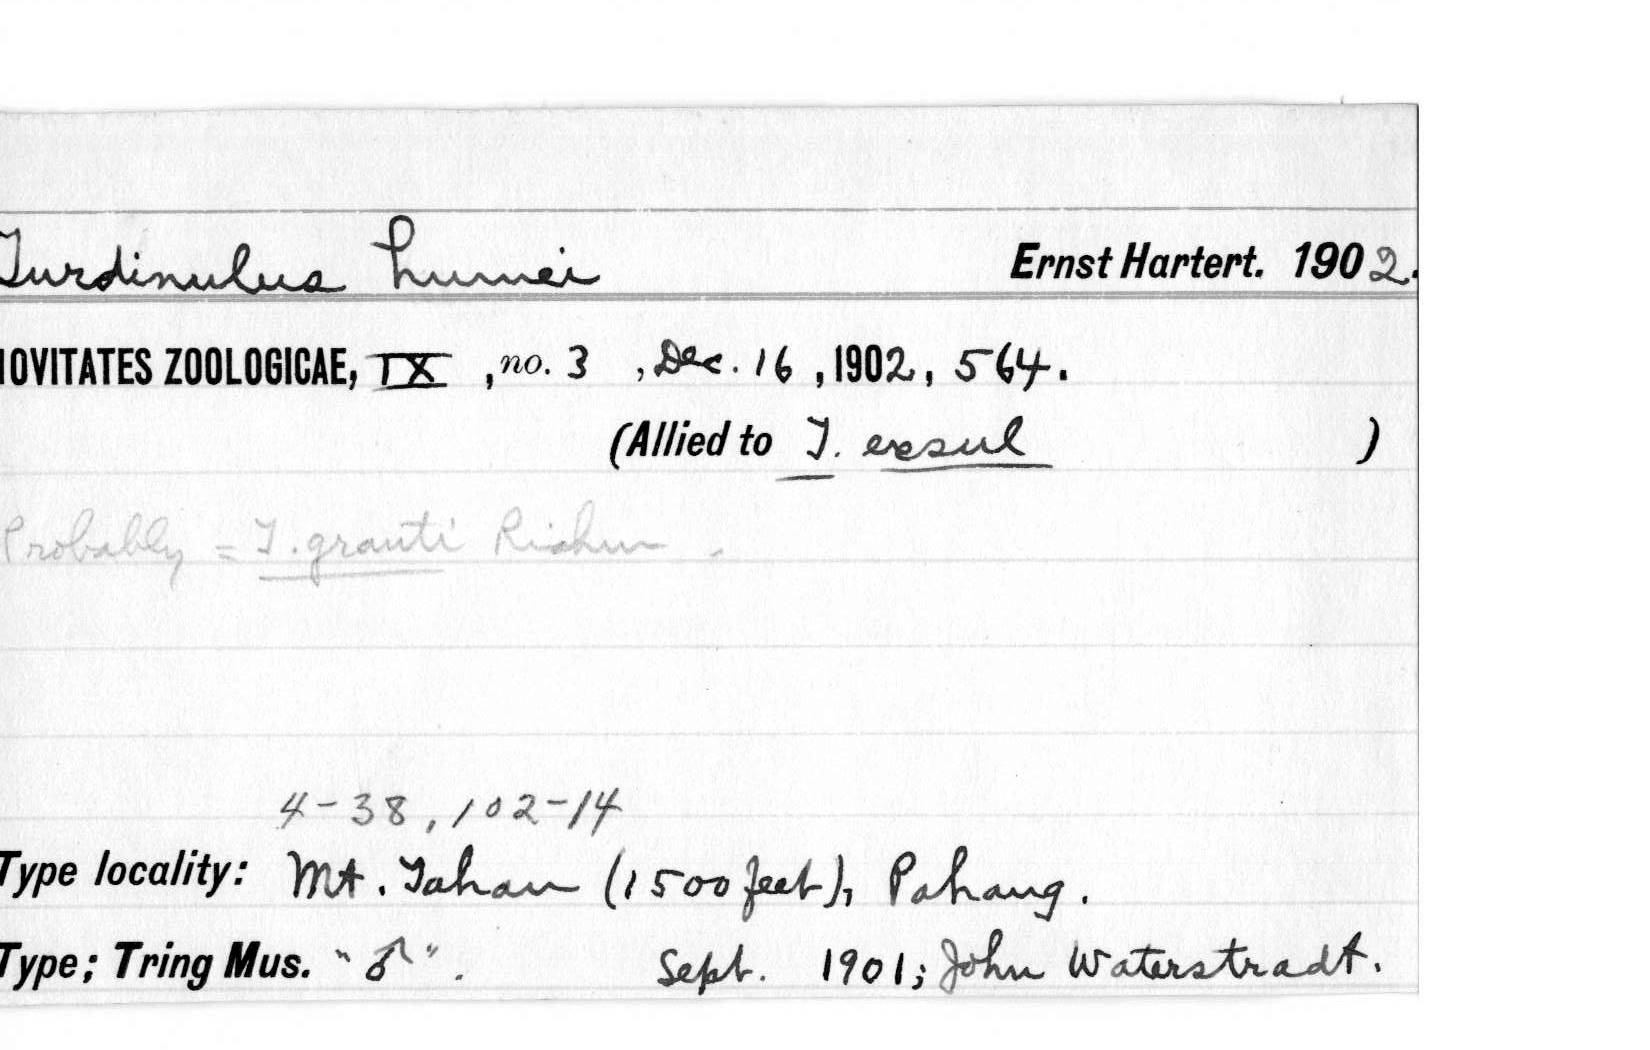 Turdinulus humei Ernst Hartert. 1902.
NOVITATES ZOOLOGICAE, IX, no. 3, Dec. 16, 1902, 564.
(Allied to T. exsul )
Probably = T. granti Richm.
4-38, 102-14
Type locality: Mt. Tahan (1500 feet), Pahang.
Type; Tring Mus. "♂". Sept. 1901; John Waterstradt.